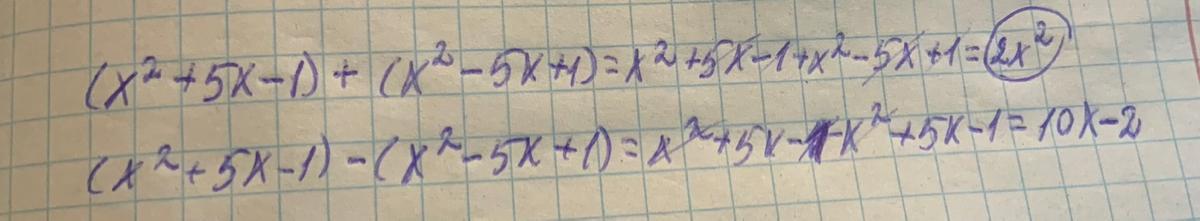 (x² + 5x - 1) + (x² - 5x + 1) = x² + 5x - 1 + x² - 5x + 1 = 2x²
(x² + 5x - 1) - (x² - 5x + 1) = x² + 5x - 1 - x² + 5x - 1 = 10x - 2